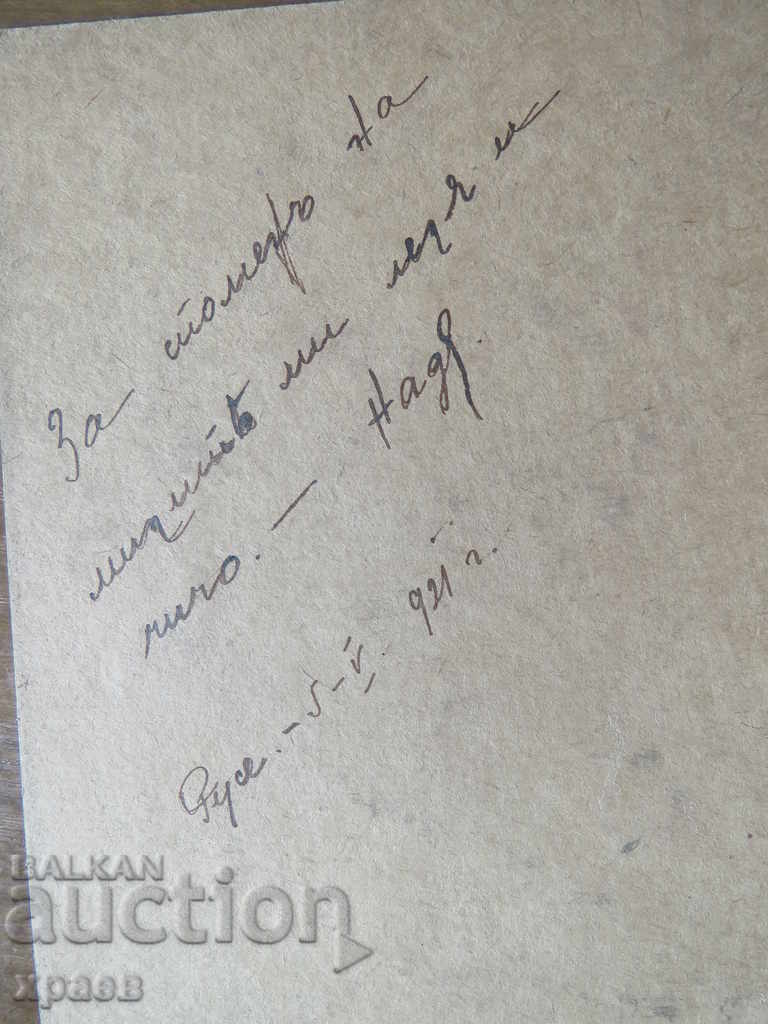 За споменъ на
милитѣ ми леля и
чичо. — Надя.
Русе. – 5 – V. 921 г.
BALKAN
auction
храев